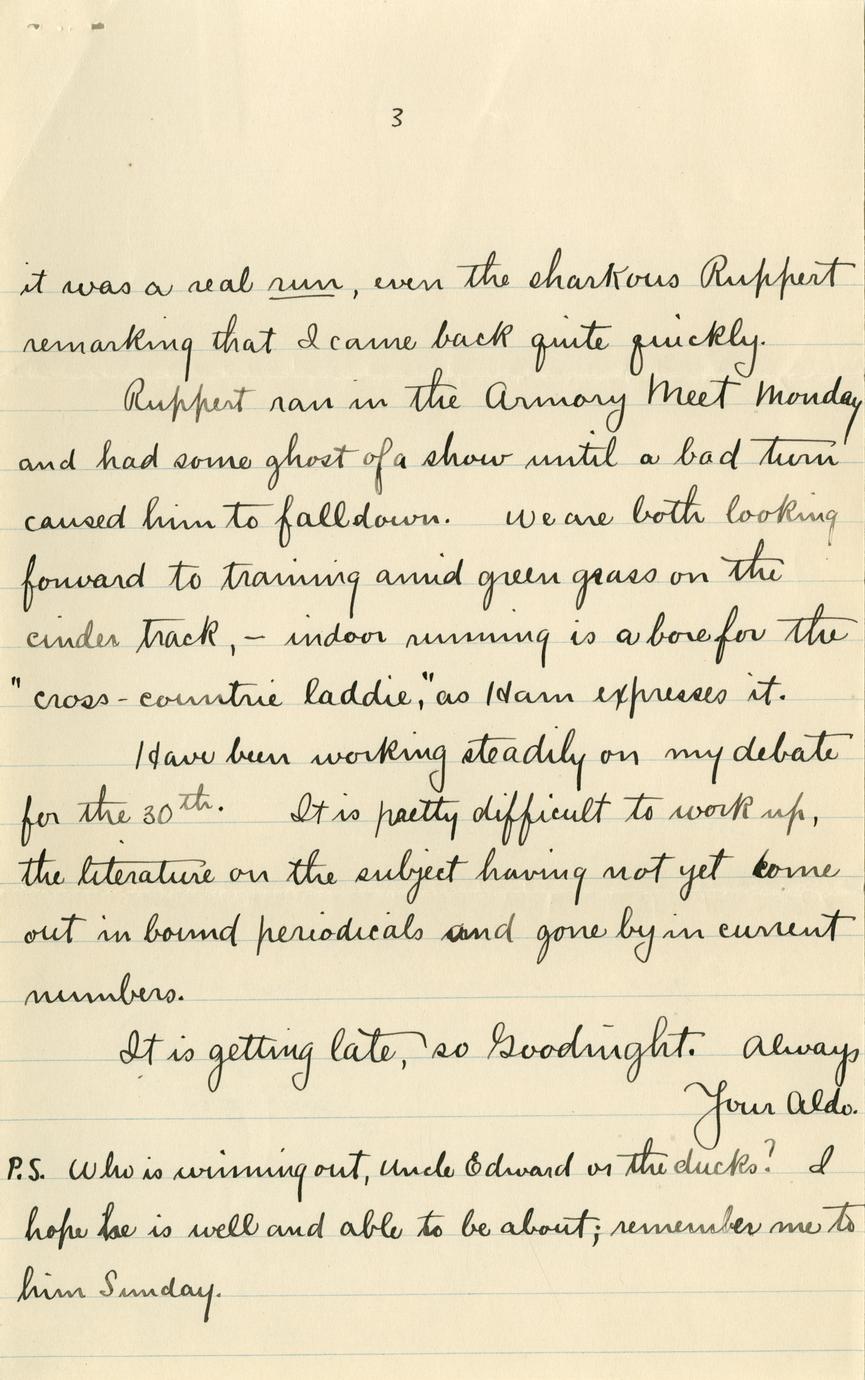 3
it was a real run, even the sharkous Ruppert
remarking that I came back quite quickly.
Ruppert ran in the Armory Meet Monday
and had some ghost of a show until a bad turn
caused him to fall down. We are both looking
forward to training amid green grass on the
cinder track,— indoor running is a bore for the
"cross-countrie laddie," as Ham expresses it.
Have been working steadily on my debate
for the 30th. It is pretty difficult to work up,
the literature on the subject having not yet come
out in bound periodicals and gone by in current
numbers.
It is getting late, so Goodnight. Always
Your Aldo.
P.S. Who is winning out, Uncle Edward or the ducks? I
hope he is well and able to be about; remember me to
him Sunday.